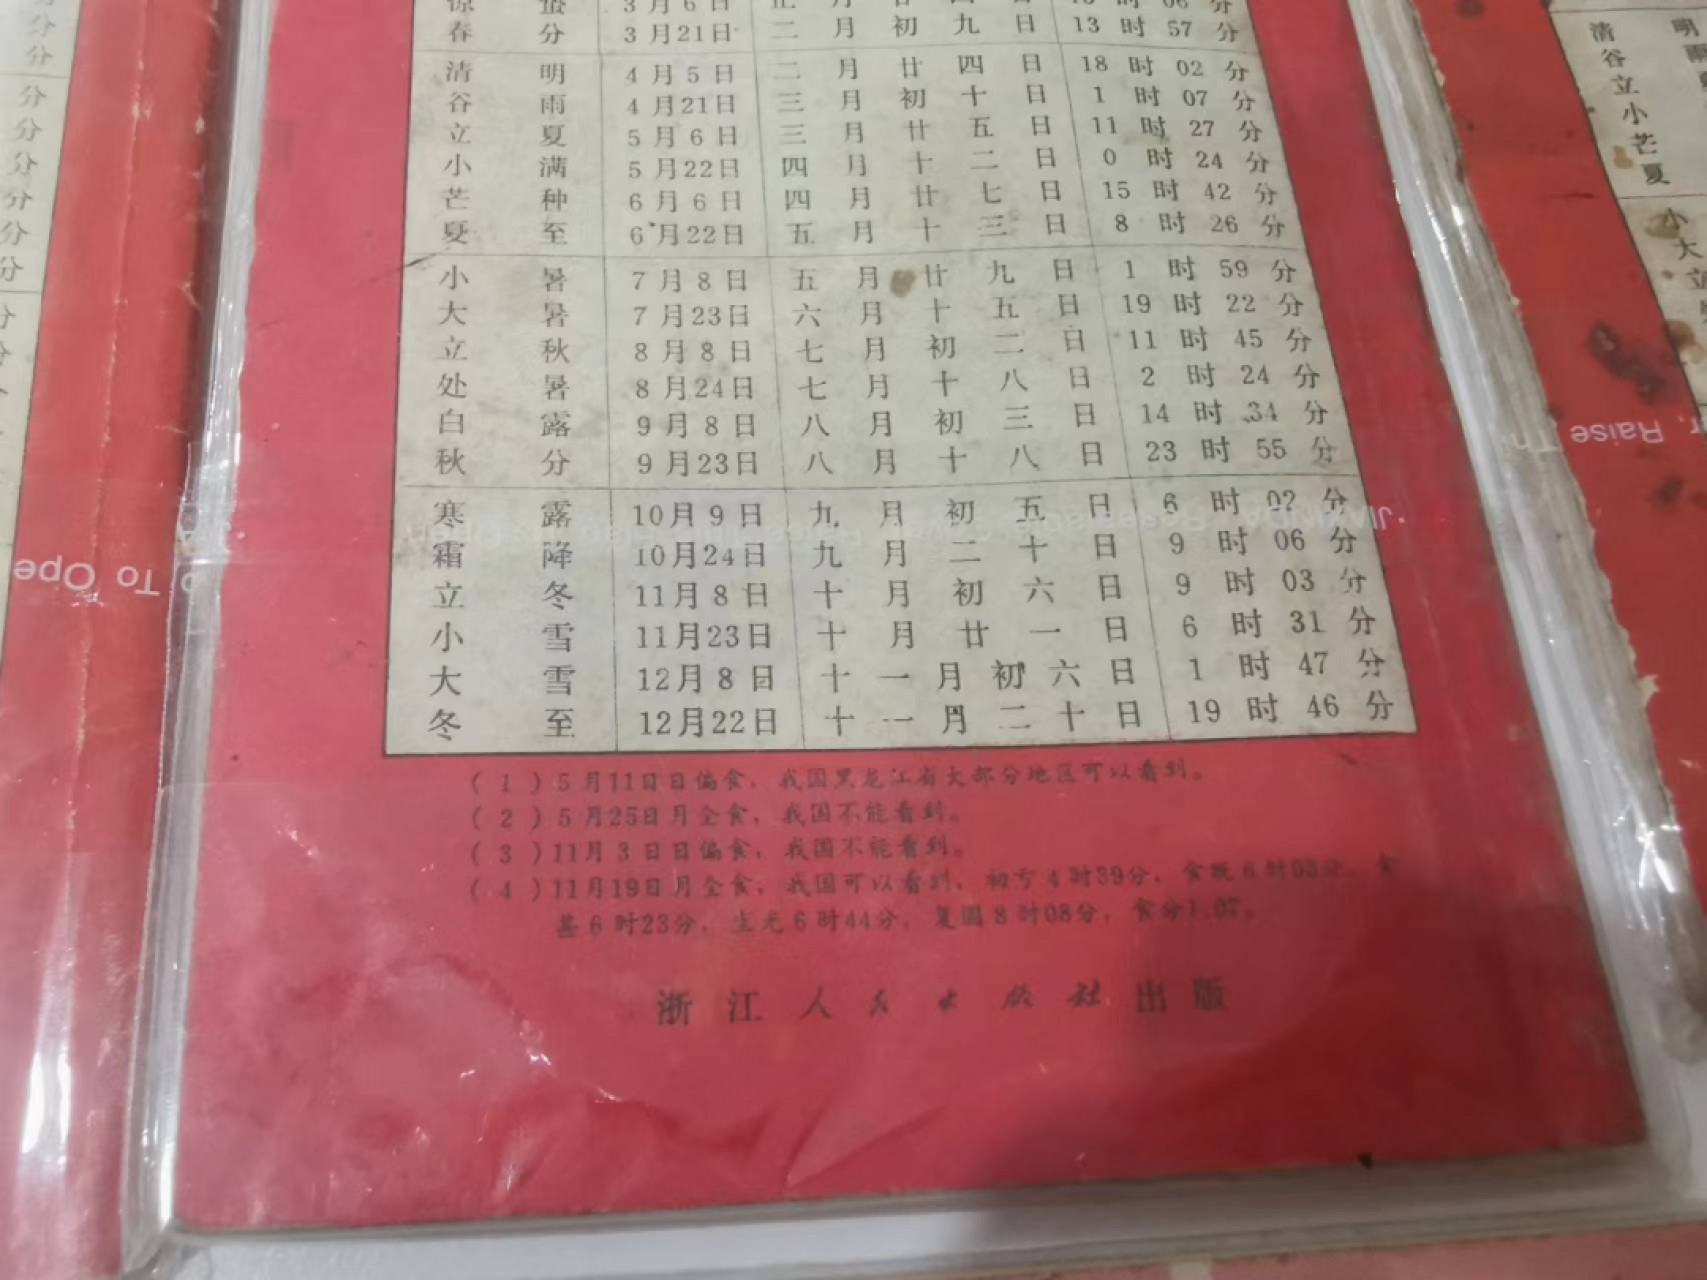 春分 3月21日 二月初九日 13时57分
清明 4月5日 二月廿四日 18时02分
谷雨 4月21日 三月初十日 1时07分
立夏 5月6日 三月廿五日 11时27分
小满 5月22日 四月十二日 0时24分
芒种 6月6日 四月廿七日 15时42分
夏至 6月22日 五月十三日 8时26分
小暑 7月8日 五月廿九日 1时59分
大暑 7月23日 六月十五日 19时22分
立秋 8月8日 七月初二日 11时45分
处暑 8月24日 七月十八日 2时24分
白露 9月8日 八月初三日 14时34分
秋分 9月23日 八月十八日 23时55分
寒露 10月9日 九月初五日 6时02分
霜降 10月24日 九月二十日 9时06分
立冬 11月8日 十月初六日 9时03分
小雪 11月23日 十月廿一日 6时31分
大雪 12月8日 十一月初六日 1时47分
冬至 12月22日 十一月二十日 19时46分
(1)5月11日日偏食，我国黑龙江省大部分地区可以看到。
(2)5月25日月全食，我国不能看到。
(3)11月3日日偏食，我国不能看到。
(4)11月19日月全食，我国可以看到，初亏4时39分，食既6时03分，食
甚6时23分，生光6时44分，复圆8时08分，食分1.07。
浙江人民出版社出版
To Ope
Raise Th
清明
谷雨
立
小
芒
夏
小
大
立